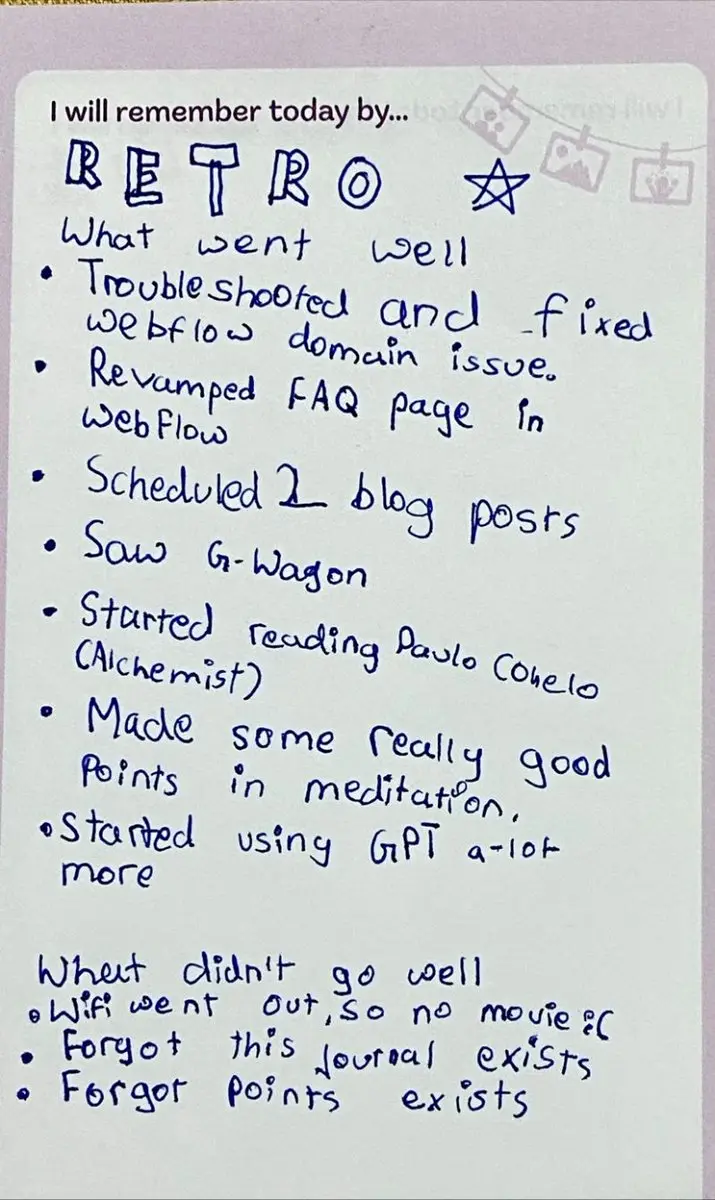 I will remember today by...
RETRO ☆
What went well
• Troubleshooted and fixed
webflow domain issue.
• Revamped FAQ page in
webflow
• Scheduled 2 blog posts
• Saw G-Wagon
• Started reading Paulo Cohelo
(Alchemist)
• Made some really good
Points in meditation.
• Started using GPT a-lot
more
What didn't go well
• Wifi went out, so no movie :(
• Forgot this journal exists
• Forgot points exists